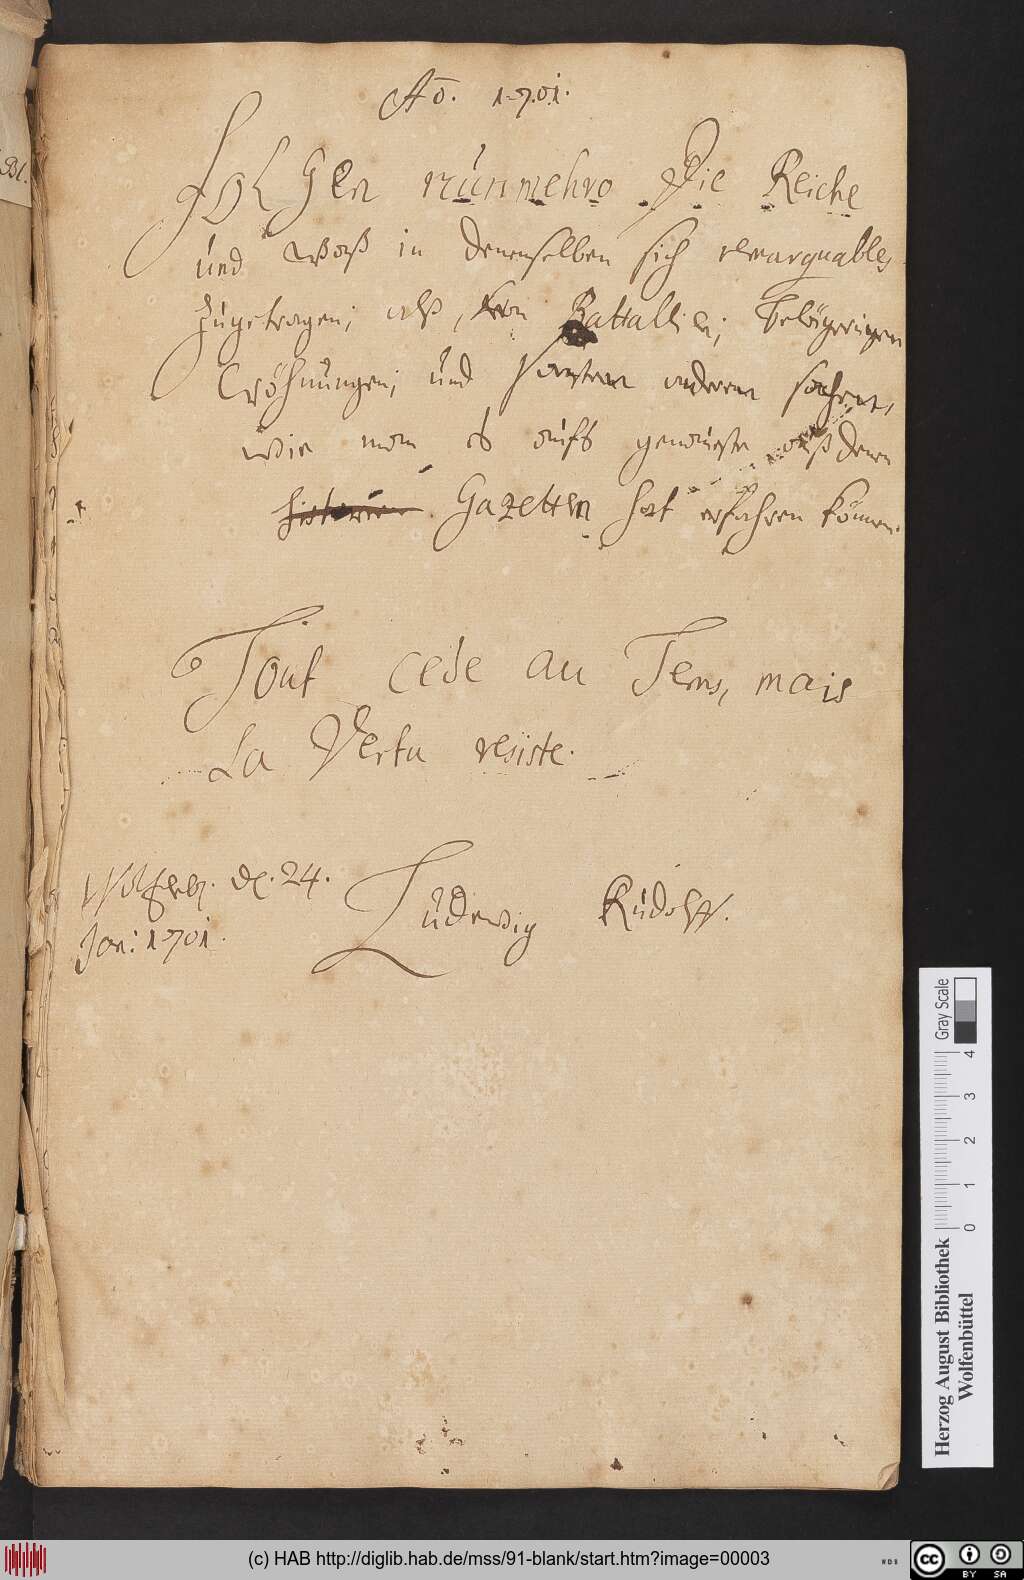 Aō. 1701.
Folgen nŭnmehro Die Reiche
ŭnd waß in denenselben sich remarquables
zŭgetragen; alß, von Battallien; Belägerŭngen
Cröhnŭngen; ŭnd sonsten anderen sachen,
wie man es aŭfs genaŭeste aŭß denen
historien Gazetten hat erfahren können.
Tout cede au Tems, mais
La Vertu resiste.
Wolfenb. d. 24.
Jan: 1701.
Lŭdewig Rŭdolff.
Bl.
Gray Scale
0 1 2 3 4
Herzog August Bibliothek
Wolfenbüttel
(c) HAB http://diglib.hab.de/mss/91-blank/start.htm?image=00003
WDB
cc BY SA